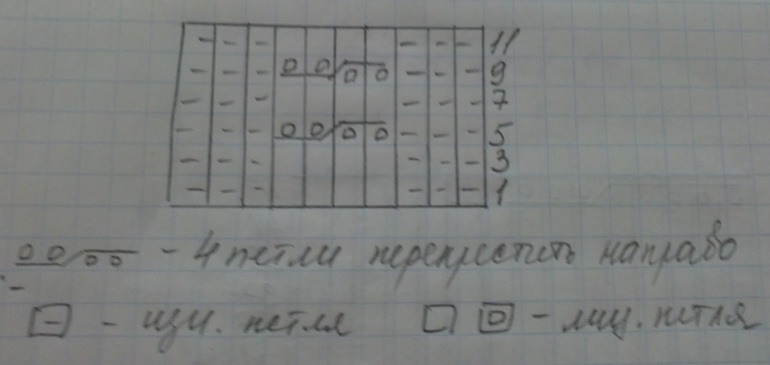 - - - - - - 11
- - - o o o o - - - 9
- - - - - - 7
- - - o o o o - - - 5
- - - - - - 3
- - - - - - 1
o o o o - 4 петли перекрестить направо
- - изн. петля o - лиц. петля